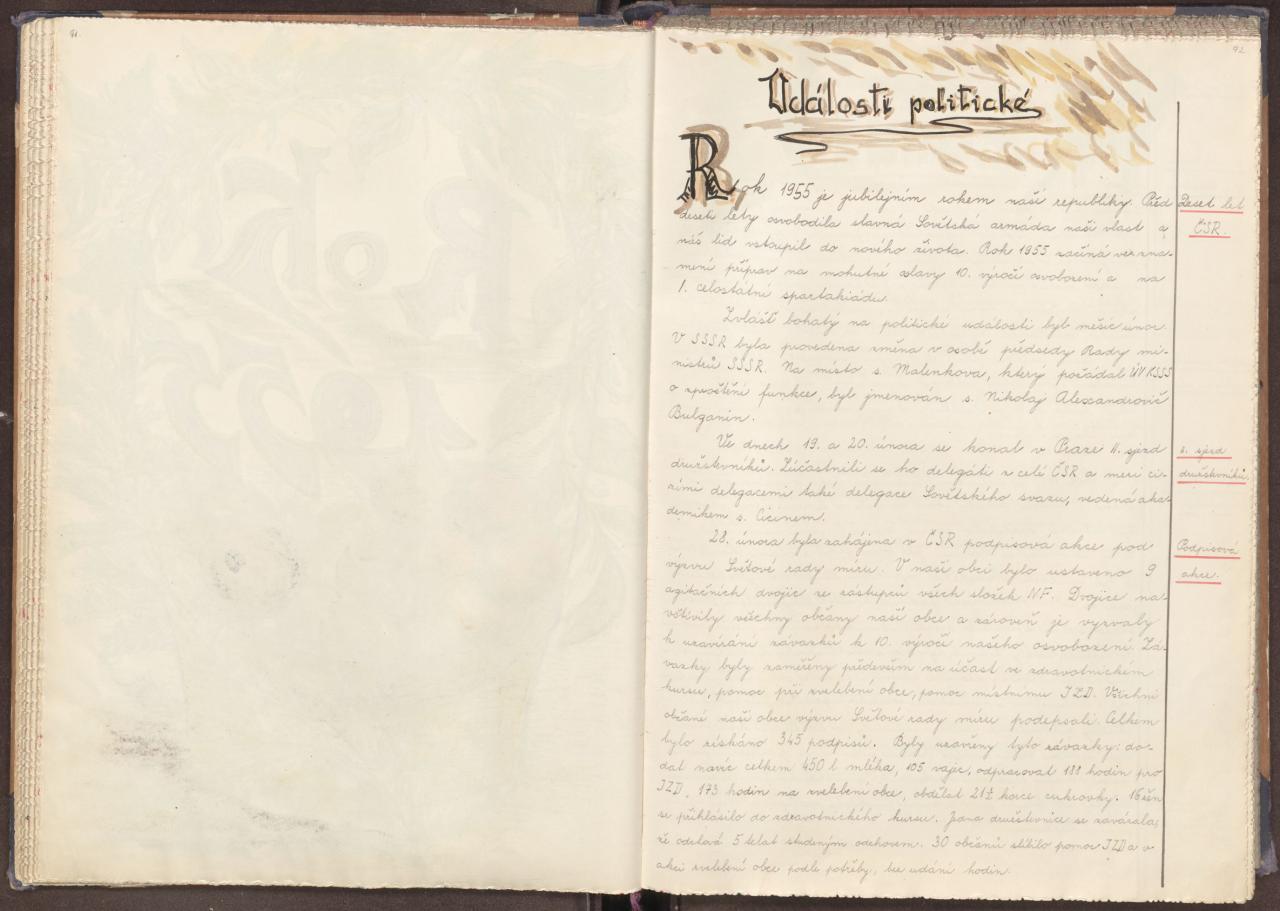 91.
92
Události politické
Rok 1955 je jubilejním rokem naší republiky. Před
deseti lety osvobodila slavná Sovětská armáda naši vlast a
náš lid vstoupil do nového života. Rok 1955 začíná ve zna-
mení příprav na mohutné oslavy 10. výročí osvobození a na
1. celostátní spartakiádu.
Deset let
ČSR.
Zvlášť bohatý na politické události byl měsíc únor.
V SSSR byla provedena změna v osobě předsedy Rady mi-
nistrů SSSR. Na místo s. Malenkova, který požádal ÚV KSSS
o zproštění funkce, byl jmenován s. Nikolaj Alexandrovič
Bulganin.
Ve dnech 19. a 20. února se konal v Praze II. sjezd
družstevníků. Zúčastnili se ho delegáti z celé ČSR a mezi ci-
zími delegacemi také delegace Sovětského svazu, vedená aka-
demikem s. Cicinem.
sjezd
družstevníků
28. února byla zahájena v ČSR podpisová akce pod
výzvu Světové rady míru. V naší obci bylo ustaveno 9
agitačních dvojic ze zástupců všech složek NF. Dvojice na-
vštívily všechny občany naší obce a zároveň je vyzvaly
k uzavírání závazků k 10. výročí našeho osvobození. Zá-
vazky byly zaměřeny především na účast ve zdravotnickém
kursu, pomoc při zvelebení obce, pomoc místnímu JZD. Všichni
občané naší obce výzvu Světové rady míru podepsali. Celkem
bylo získáno 345 podpisů. Byly uzavřeny tyto závazky: do-
dat navíc celkem 450 l mléka, 105 vajec, odpracovat 188 hodin pro
JZD, 173 hodin na zvelebení obce, obdělat 21½ korce cukrovky. 16 žen
se přihlásilo do zdravotnického kursu. Jedna družstevnice se zavázala,
že odchová 5 telat studeným odchovem. 30 občanů slíbilo pomoc JZD a v
akci zvelebení obce podle potřeby, bez udání hodin.
Podpisová
akce.